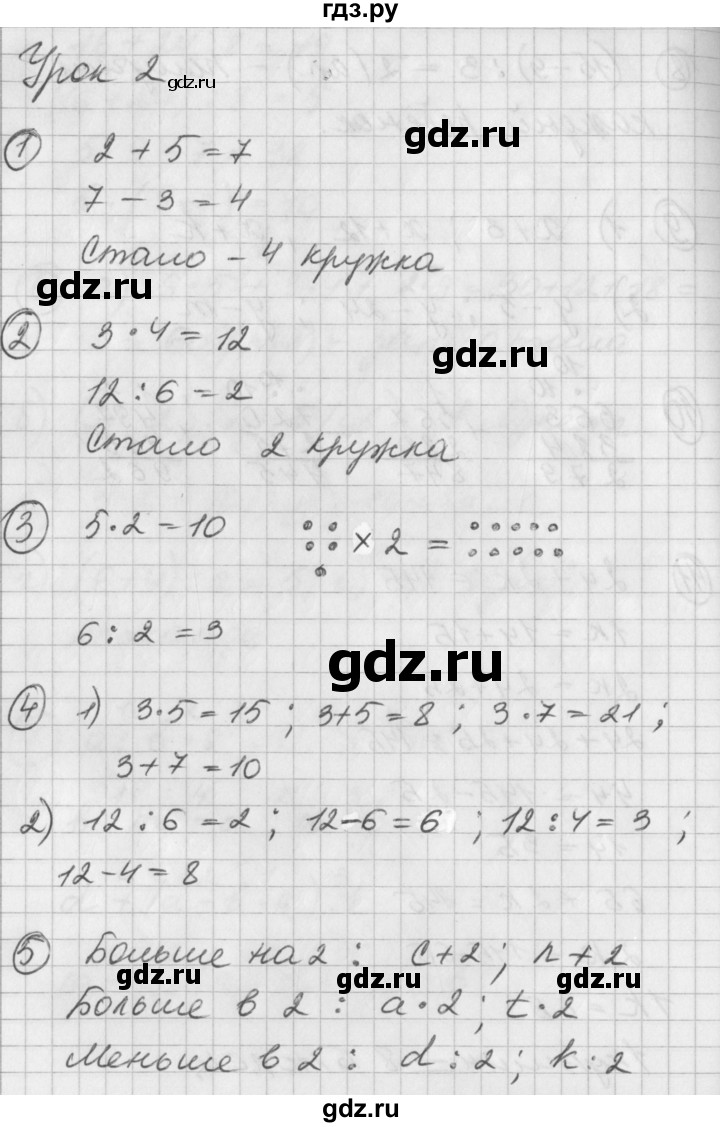 гдз.ру
Урок 2
gdz.ru
① 2 + 5 = 7
gdz.ru
7 - 3 = 4
Стало - 4 кружка
gdz.ru
② 3 · 4 = 12
gdz.ru
12 : 6 = 2
Стало 2 кружка
③ 5 · 2 = 10 × 2 =
6 : 2 = 3
gdz.ru
④ 1) 3 · 5 = 15 ; 3 + 5 = 8 ; 3 · 7 = 21 ;
3 + 7 = 10
2) 12 : 6 = 2 ; 12 - 6 = 6 ; 12 : 4 = 3 ;
12 - 4 = 8
⑤ Больше на 2 : c + 2 ; n + 2
gdz.ru gdz.ru gdz.ru
Больше в 2 : a · 2 ; t · 2
Меньше в 2 : d : 2 ; k : 2
gdz.ru